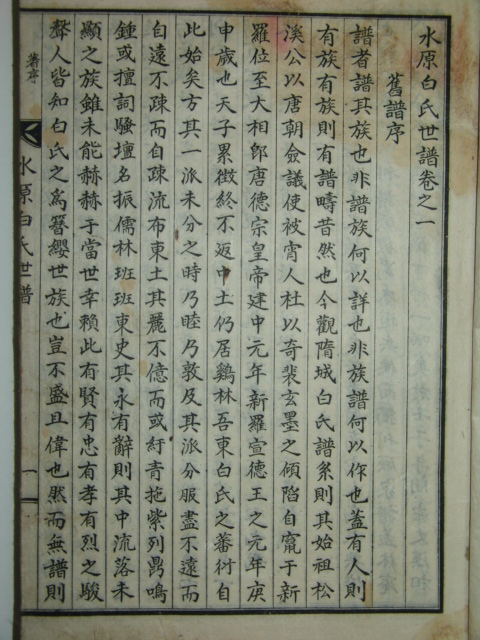 水原白氏世譜卷之一
舊譜序
譜者譜其族也非譜族何以詳也非族譜何以作也蓋有人則
有族有族則有譜疇昔然也今觀隋城白氏譜系則其始祖松
溪公以唐朝僉議使被宵人杜以奇裴玄墨之傾陷自竄于新
羅位至大相卽唐德宗皇帝建中元年新羅宣德王之元年庚
申歲也天子累徵終不返中土仍居鷄林吾東白氏之蕃衍自
此始矣方其一派未分之時乃睦乃敦及其派分服盡不遠而
自遠不疎而自疎流布東土其麗不億而或紆靑拖紫列爵鳴
鍾或擅詞騷壇名振儒林班班東史其永有辭則其中流落未
顯之族雖未能赫赫于當世幸賴此有賢有忠有孝有烈之駿
聲人皆知白氏之爲簪纓世族也豈不盛且偉也然而無譜則
舊序
水原白氏世譜
一